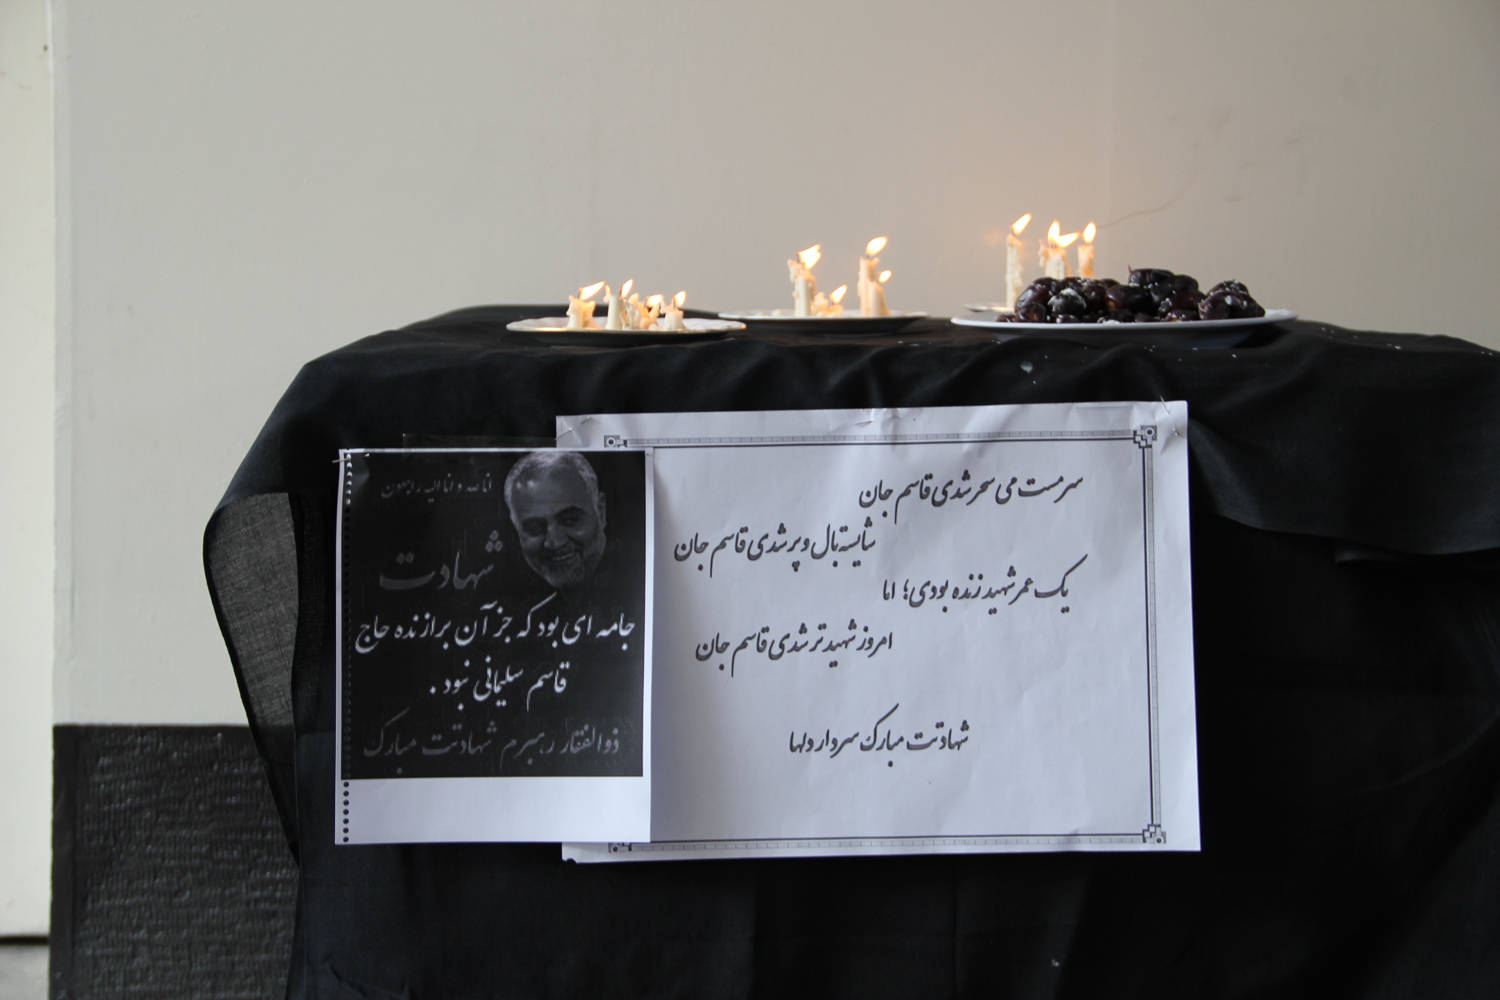 انا لله و انا الیه راجعون
شهادت
جامه ای بود که جز آن برازنده حاج
قاسم سلیمانی نبود .
ذوالفقار رهبرم شهادتت مبارک
سرمست می سحر شدی قاسم جان
شایسته بال و پر شدی قاسم جان
یک عمر شهید زنده بودی؛ اما
امروز شهیدتر شدی قاسم جان
شهادتت مبارک سردار دلها